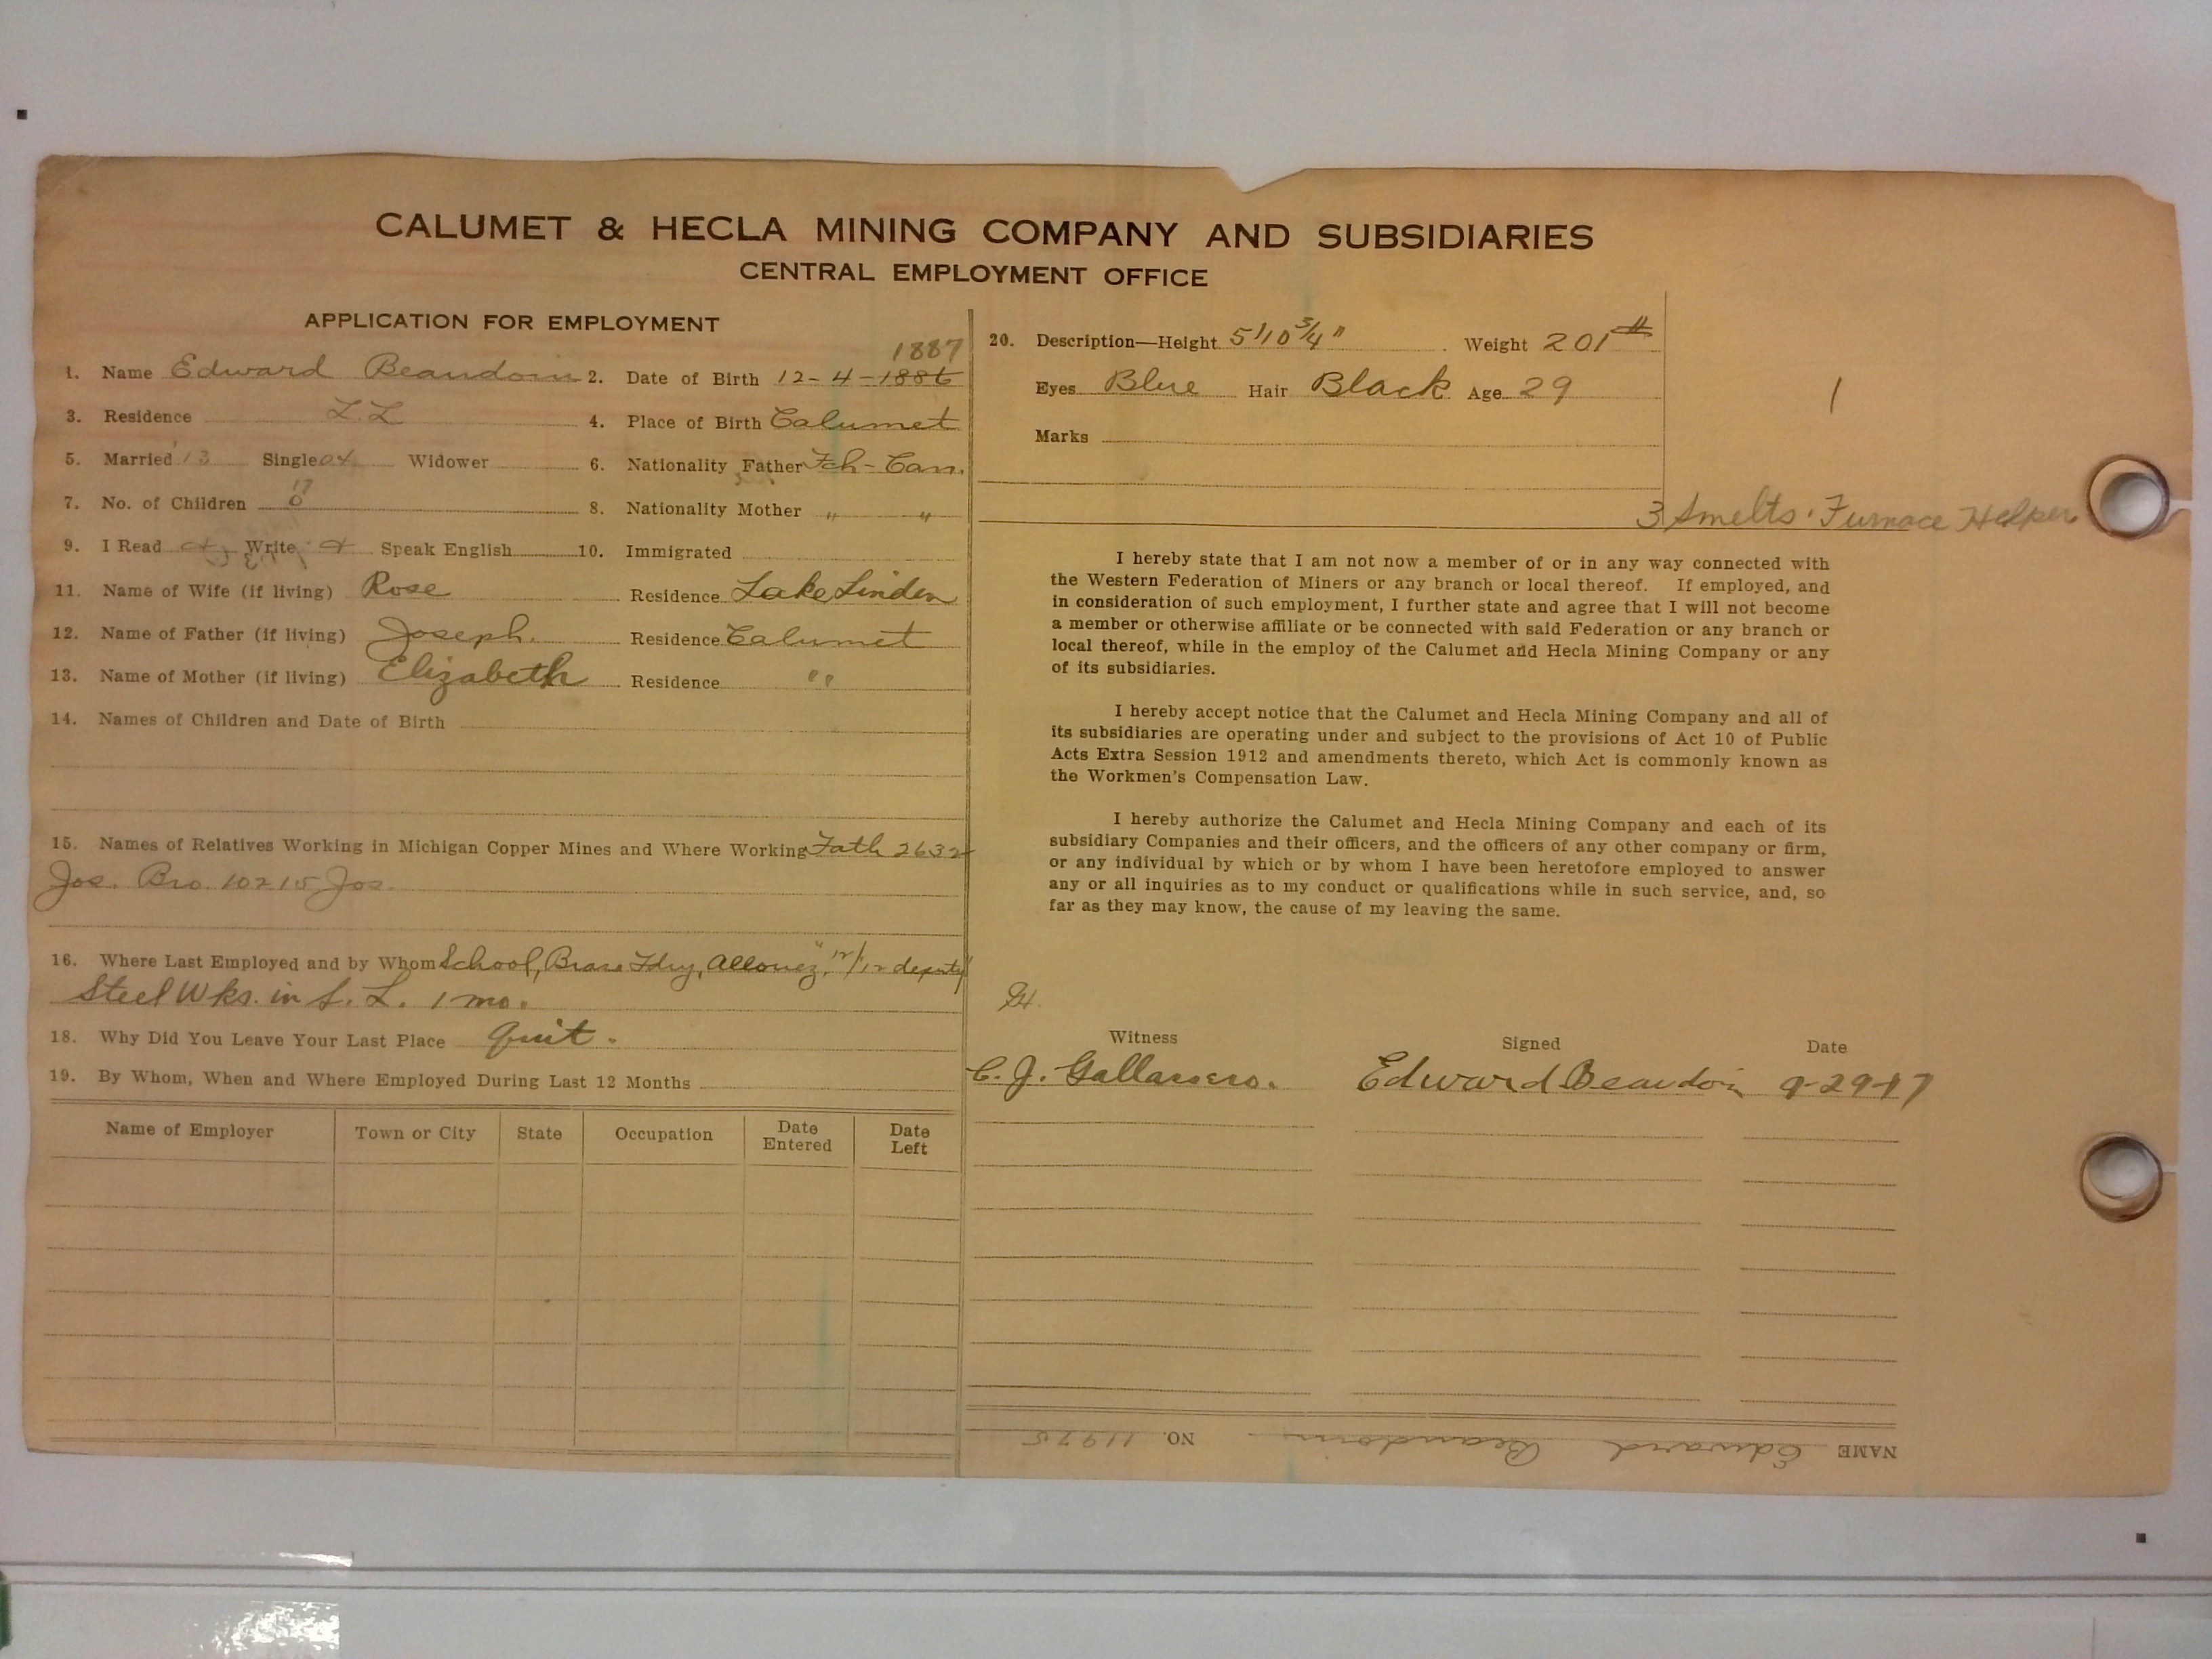 CALUMET & HECLA MINING COMPANY AND SUBSIDIARIES
CENTRAL EMPLOYMENT OFFICE
APPLICATION FOR EMPLOYMENT
1887
1. Name Edward Beaudoin 2. Date of Birth 12-4-1886
3. Residence L.L 4. Place of Birth Calumet
5. Married 13 Single 04 Widower 6. Nationality Father Fch-Can.
17
7. No. of Children 0 8. Nationality Mother " "
9. I Read Write Speak English 10. Immigrated
11. Name of Wife (if living) Rose Residence Lake Linden
12. Name of Father (if living) Joseph. Residence Calumet
13. Name of Mother (if living) Elizabeth Residence "
14. Names of Children and Date of Birth
15. Names of Relatives Working in Michigan Copper Mines and Where Working Fath 2632
Jos. Bro. 10215 Jos.
16. Where Last Employed and by Whom School, Brass Fdry, Allouez, deputy
Steel Wks. in L. 1 mo.
18. Why Did You Leave Your Last Place quit.
19. By Whom, When and Where Employed During Last 12 Months
Name of Employer Town or City State Occupation Date Entered Date Left
20. Description—Height 5'10 3/4" Weight 201#
Eyes Blue Hair Black Age 29
Marks
1
3 Smelts. Furnace Helper
I hereby state that I am not now a member of or in any way connected with
the Western Federation of Miners or any branch or local thereof. If employed, and
in consideration of such employment, I further state and agree that I will not become
a member or otherwise affiliate or be connected with said Federation or any branch or
local thereof, while in the employ of the Calumet and Hecla Mining Company or any
of its subsidiaries.
I hereby accept notice that the Calumet and Hecla Mining Company and all of
its subsidiaries are operating under and subject to the provisions of Act 10 of Public
Acts Extra Session 1912 and amendments thereto, which Act is commonly known as
the Workmen's Compensation Law.
I hereby authorize the Calumet and Hecla Mining Company and each of its
subsidiary Companies and their officers, and the officers of any other company or firm,
or any individual by which or by whom I have been heretofore employed to answer
any or all inquiries as to my conduct or qualifications while in such service, and, so
far as they may know, the cause of my leaving the same.
Witness Signed Date
C. J. Gallarsero. Edward Beaudoin 9-29-17
NAME Edward Beaudoin NO. 11975